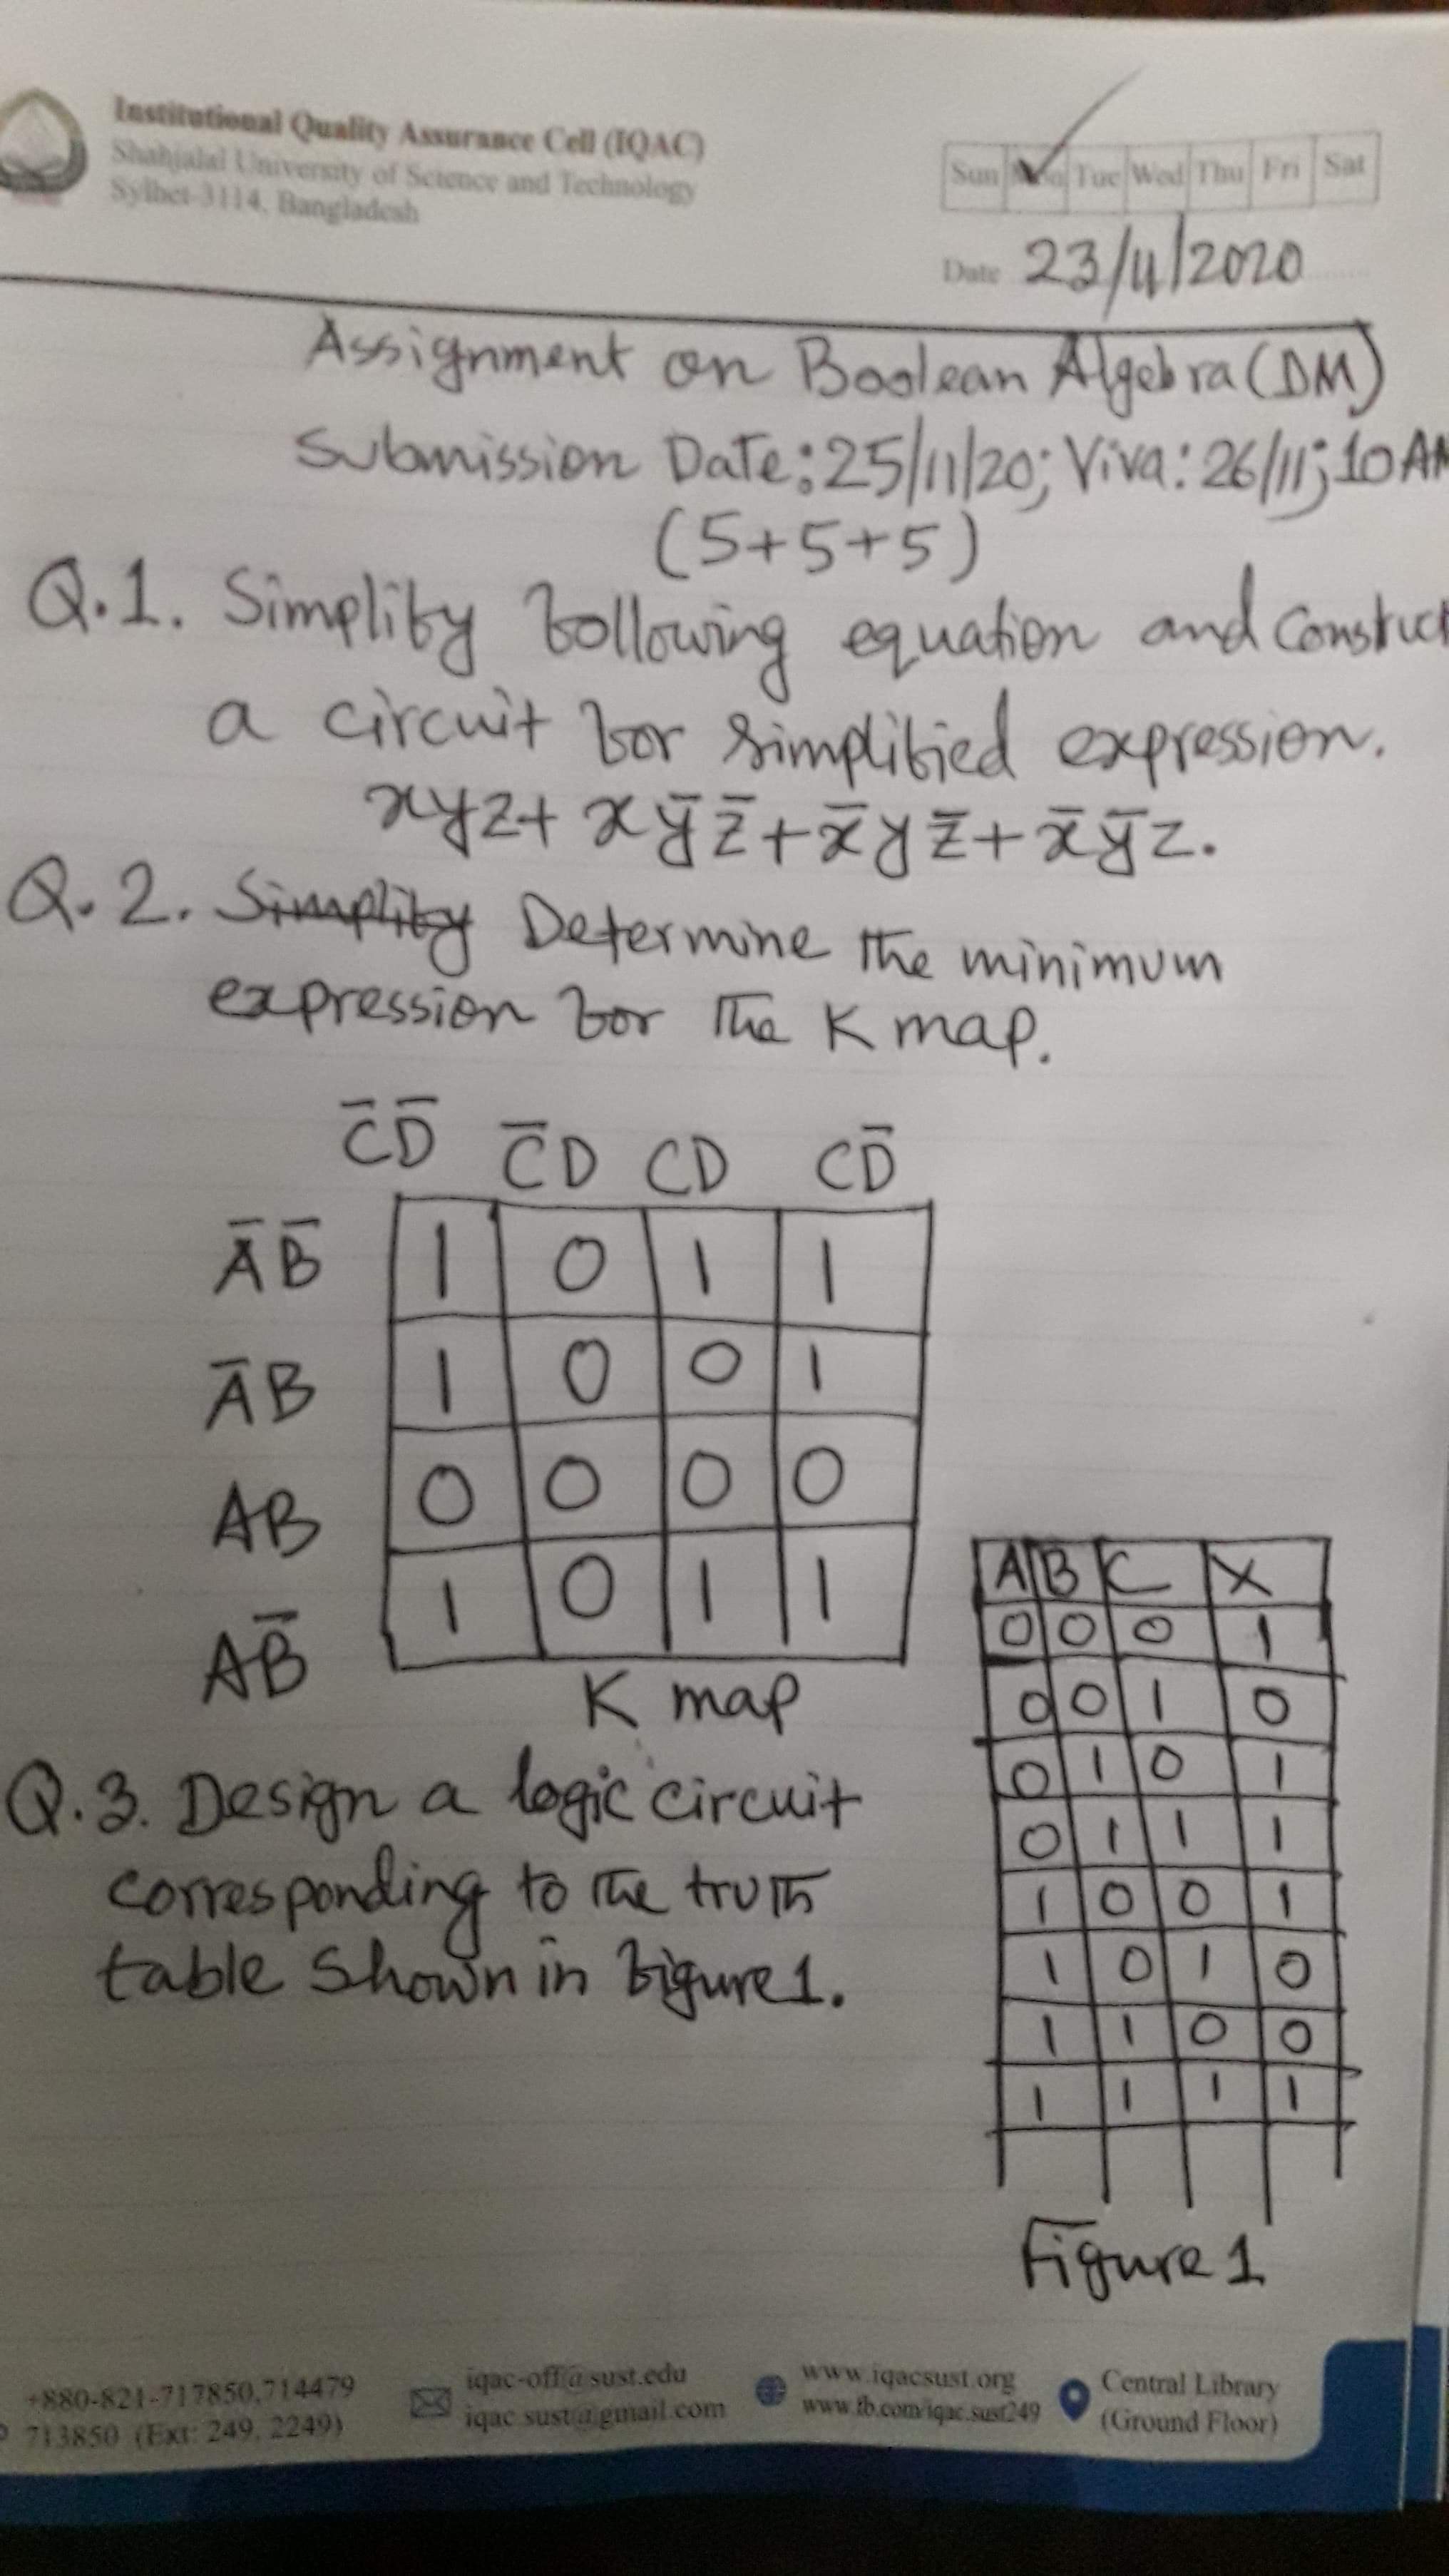 Institutional Quality Assurance Cell (IQAC)
Shahjalal University of Science and Technology
Sylhet-3114, Bangladesh
Sun Mon Tue Wed Thu Fri Sat
Date 23/11/2020
Assignment on Boolean Algebra (DM)
Submission Date: 25/11/20; Viva: 26/11; 10 AM
(5+5+5)
Q.1. Simplify following equation and Construct
a circuit for simplified expression.
xyz + xy̅z̅ + x̅yz̅ + x̅y̅z.
Q.2. Simplify Determine the minimum
expression for the K map.
C̅D̅ C̅D CD CD̅
A̅B̅ 1 0 1 1
A̅B 1 0 0 1
AB 0 0 0 0
AB̅ 1 0 1 1
K map
Q.3. Design a logic circuit
corresponding to the truth
table shown in figure 1.
A B C X
0 0 0 1
0 0 1 0
0 1 0 1
0 1 1 1
1 0 0 1
1 0 1 0
1 1 0 0
1 1 1 1
Figure 1
+880-821-717850,714479
713850 (Ext: 249, 2249)
iqac-off@sust.edu
iqac.sust@gmail.com
www.iqacsust.org
www.fb.com/iqac.sust249
Central Library
(Ground Floor)